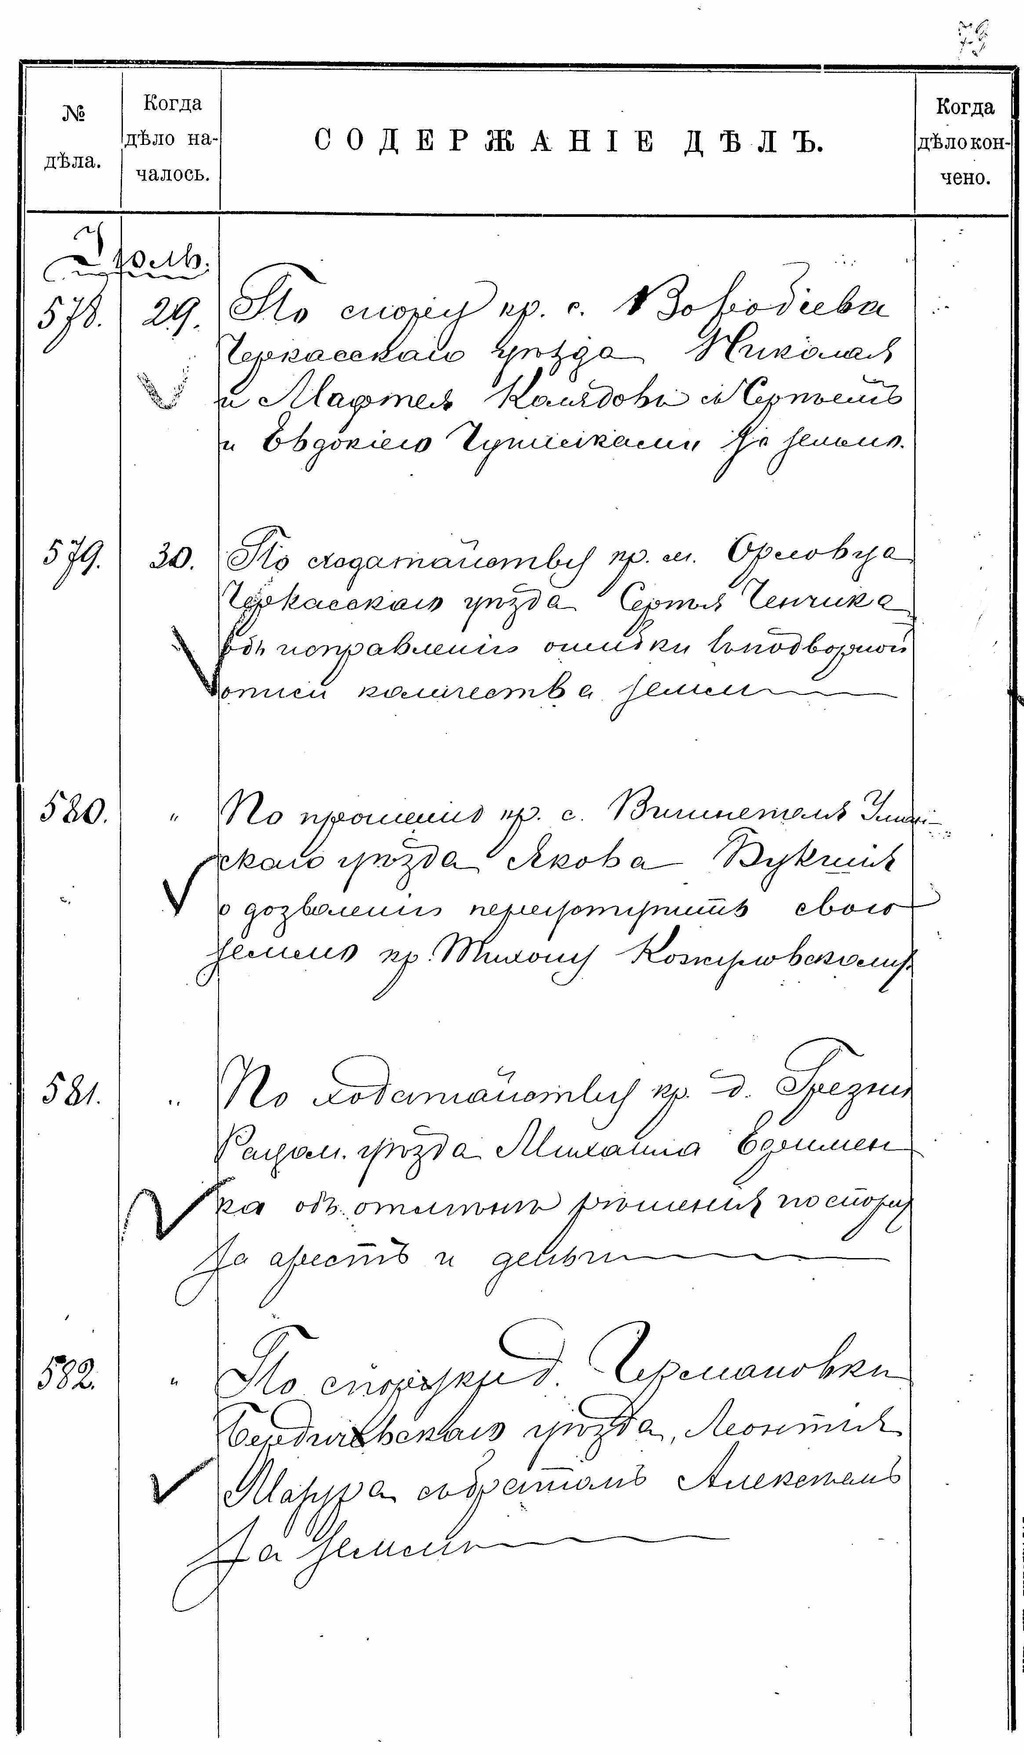 73
№ дѣла.
Когда дѣло на-чалось.
СОДЕРЖАНІЕ ДѢЛЪ.
Когда дѣло кон-чено.
Іюль.
578. 29. По спору кр. с. Воробіевки
Черкасскаго уѣзда Николая
и Мафтея Колядовъ съ Сергѣемъ
и Евдокіею за землю.
579. 30. По ходатайству кр. м. Орловца
Черкасскаго уѣзда Сергѣя Ченчика
объ исправленіи ошибки въ подворной
описи количества земли
580. " По прошенію кр. с. Вишнеполя Уман-
скаго уѣзда Якова
о дозволеніи переуступить свою
землю кр. Тихону Кожуховскому.
581. " По ходатайству кр. д. Грезни
Радом. уѣзда Михаила Ефимен
ка объ отмѣнѣ рѣшенія по спору
за арестъ и деньги
582. " По спору кр. д. Чермановки
Бердичевскаго уѣзда, Леонтія
Мазура съ братомъ Алексѣемъ
за землю